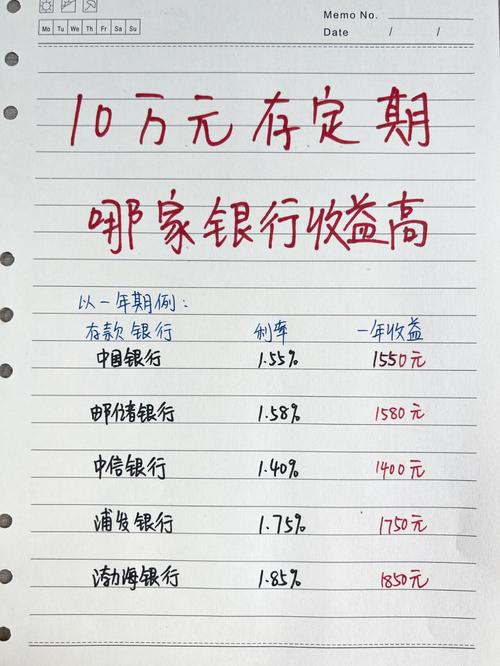 Memo No.
Mo Tu We Th Fr Sa Su
Date / /
10万元存定期
哪家银行收益高
以一年期例:
存款银行 利率 一年收益
中国银行 1.55% 1550元
邮储银行 1.58% 1580元
中信银行 1.40% 1400元
浦发银行 1.75% 1750元
渤海银行 1.85% 1850元